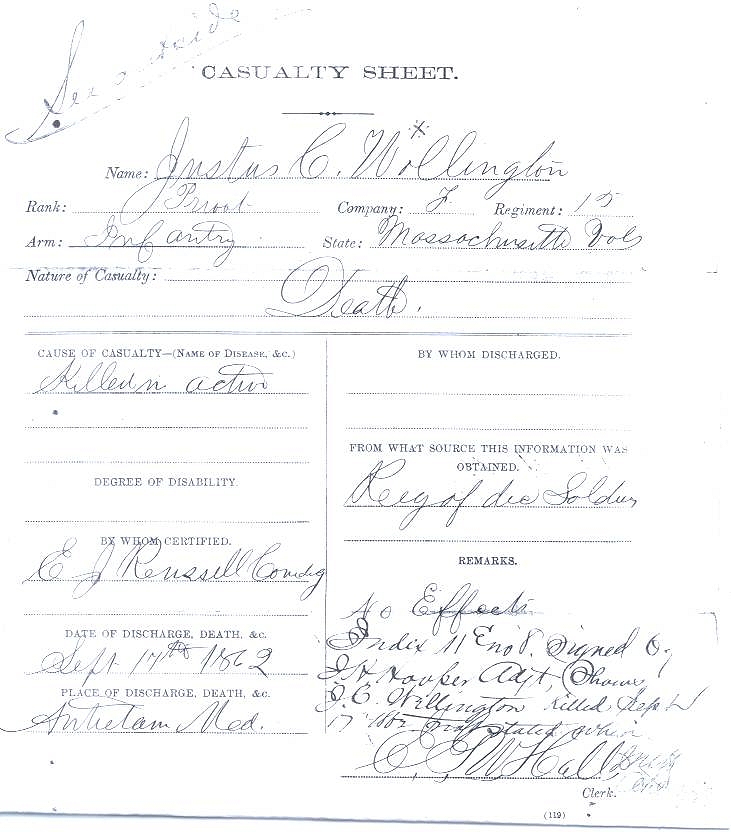 See outside
CASUALTY SHEET.
Name: Justus C. Wellington
Rank: Privat Company: F Regiment: 15
Arm: Infantry State: Massachusetts Vols
Nature of Casualty:
Death.
CAUSE OF CASUALTY—(NAME OF DISEASE, &C.)
Killed in action
DEGREE OF DISABILITY.
BY WHOM CERTIFIED.
E J Russell Comdg
DATE OF DISCHARGE, DEATH, &C.
Sept 17th 1862
PLACE OF DISCHARGE, DEATH, &C.
Antietam Med.
BY WHOM DISCHARGED.
FROM WHAT SOURCE THIS INFORMATION WAS
OBTAINED.
Reg of dec Soldiers
REMARKS.
No Effects
Index 11 Signed by
Hooper Adjt, Shows
J. C. Wellington killed Sept
17 1862 not stated where
Hall
Clerk.
(119)